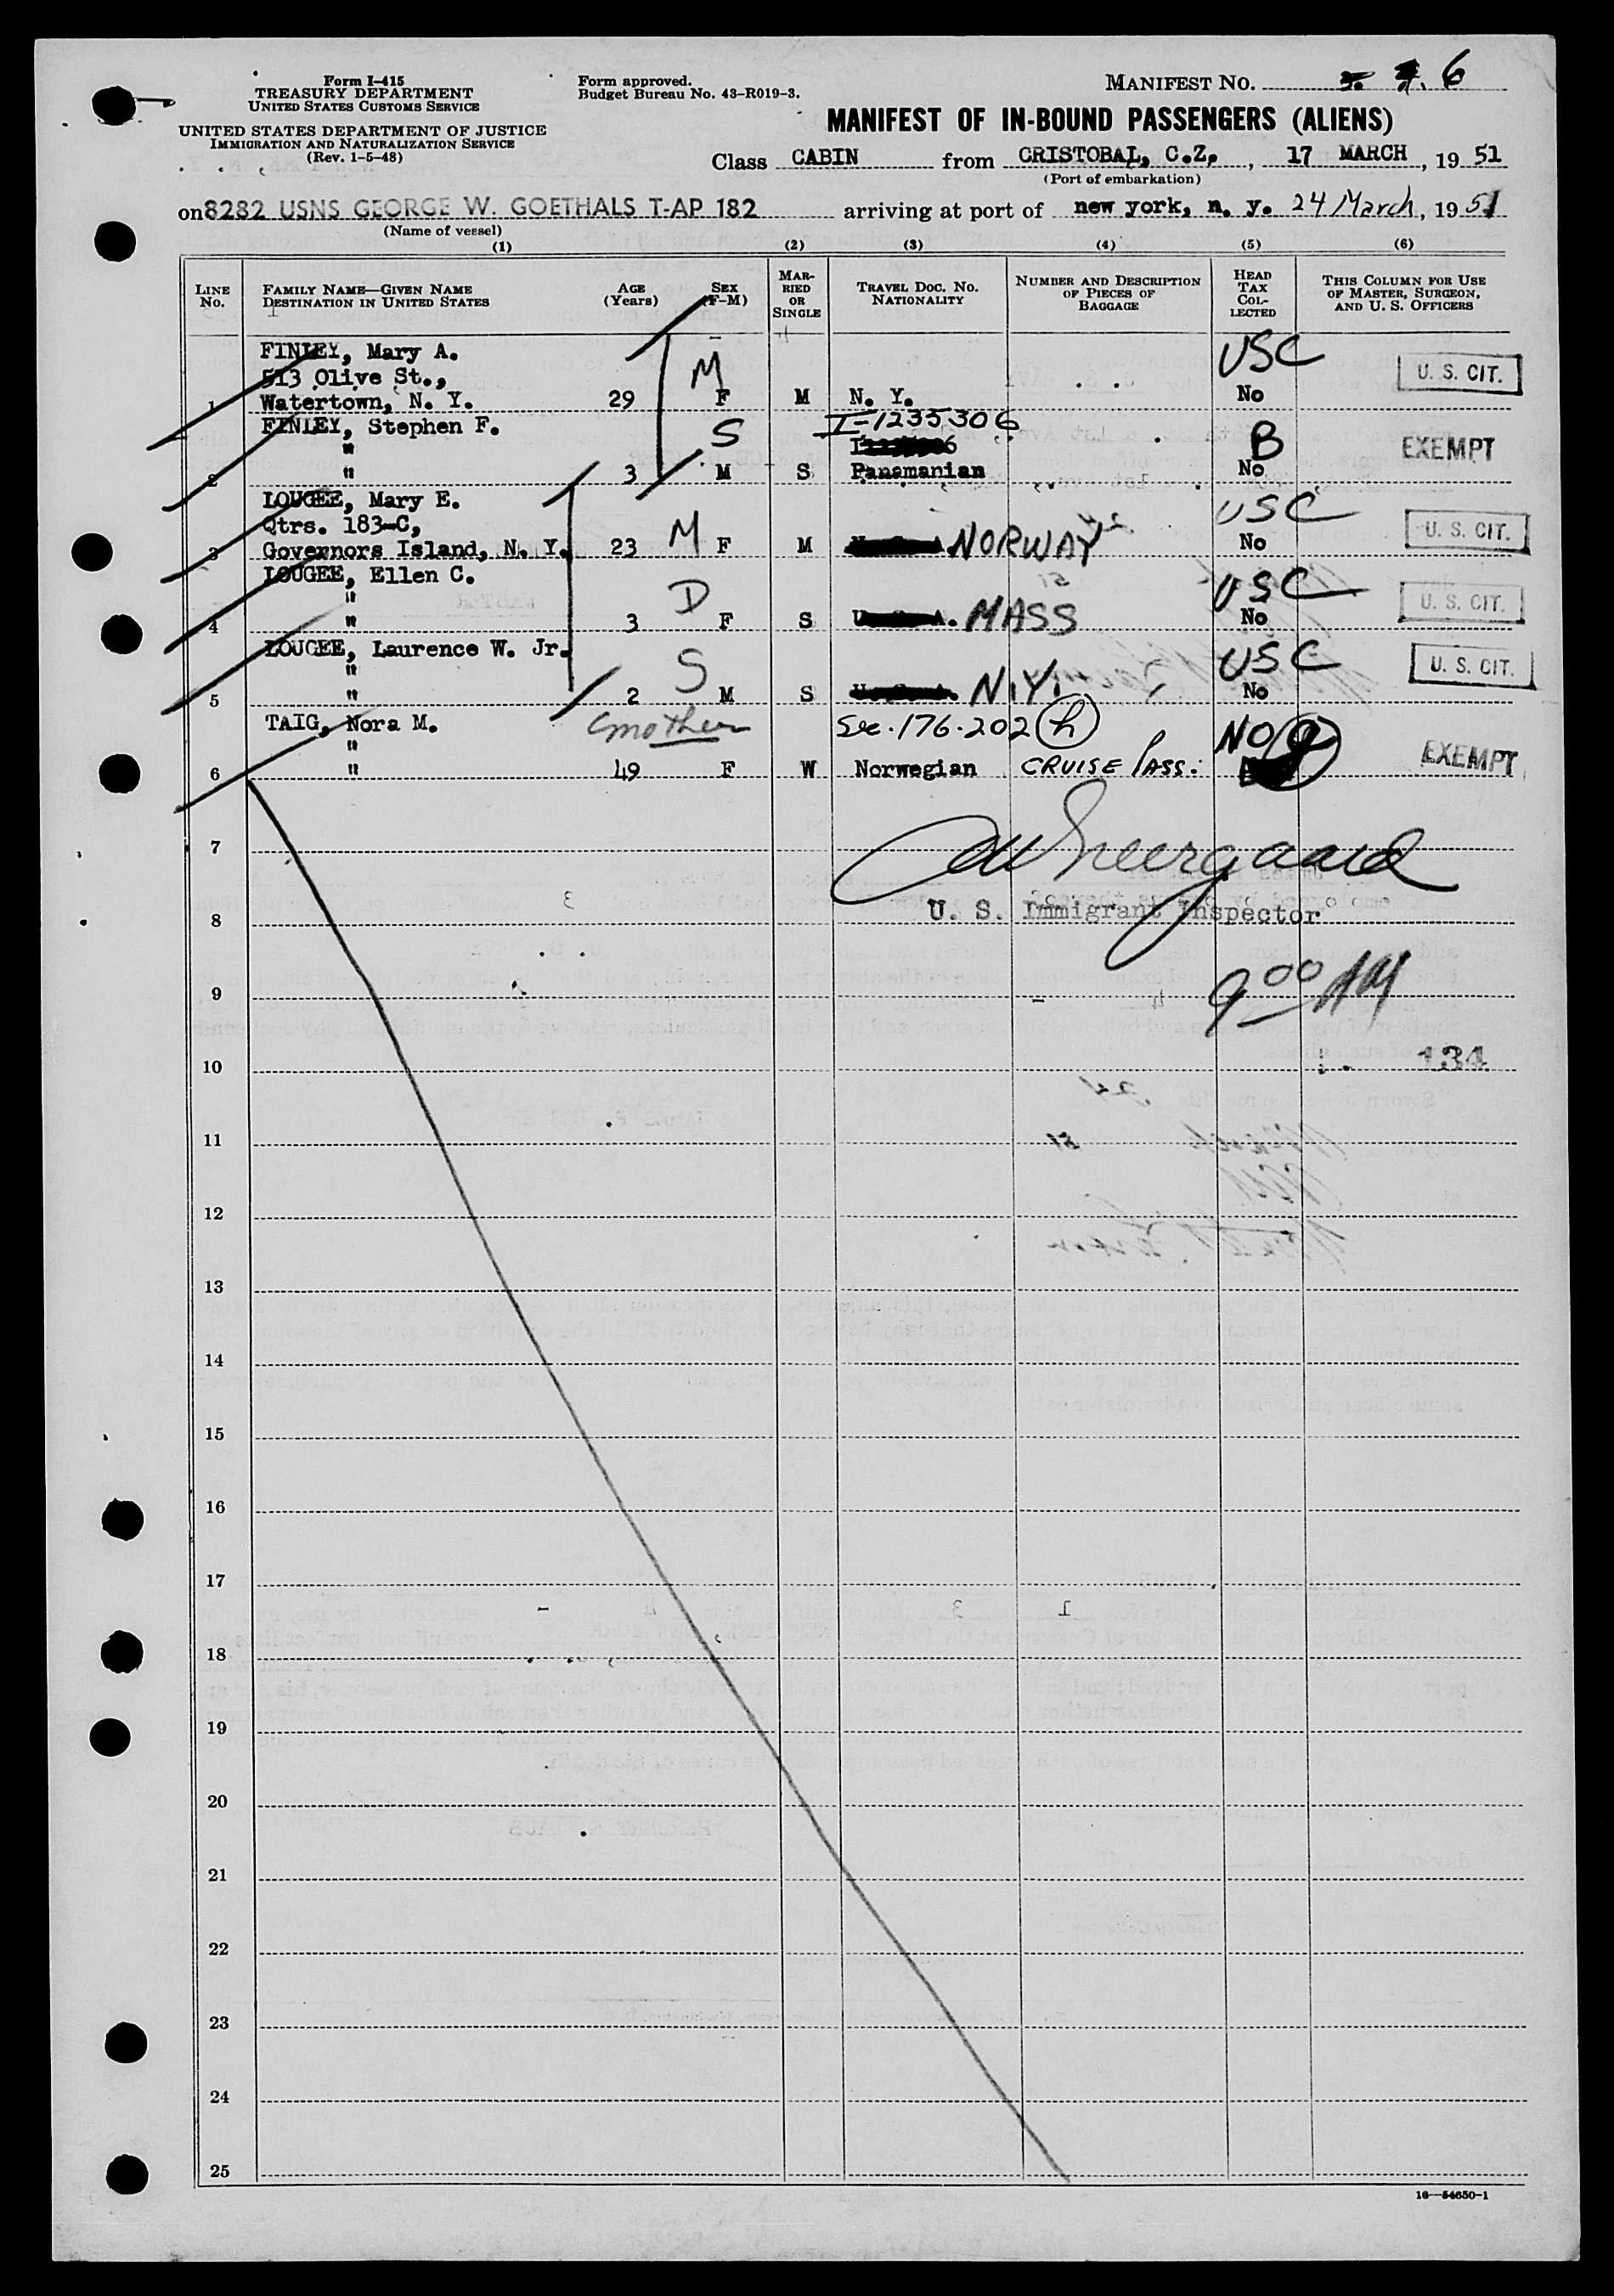 Form I-415
TREASURY DEPARTMENT
UNITED STATES CUSTOMS SERVICE
UNITED STATES DEPARTMENT OF JUSTICE
IMMIGRATION AND NATURALIZATION SERVICE
(Rev. 1-5-48)
Form approved.
Budget Bureau No. 43-R019-3.
MANIFEST NO. 6
MANIFEST OF IN-BOUND PASSENGERS (ALIENS)
Class CABIN from CRISTOBAL, C.Z., 17 MARCH, 19 51
(Port of embarkation)
on 8282 USNS GEORGE W. GOETHALS T-AP 182 arriving at port of new york, n. y. 24 March, 19 51
(Name of vessel)
(1) (2) (3) (4) (5) (6)
LINE No. FAMILY NAME—GIVEN NAME DESTINATION IN UNITED STATES AGE (Years) SEX (F-M) MARRIED OR SINGLE TRAVEL DOC. NO. NATIONALITY NUMBER AND DESCRIPTION OF PIECES OF BAGGAGE HEAD TAX COLLECTED THIS COLUMN FOR USE OF MASTER, SURGEON, AND U. S. OFFICERS
FINLEY, Mary A. USC
513 Olive St., M U. S. CIT.
1 Watertown, N. Y. 29 F M N. Y. No
FINLEY, Stephen F. S I-1235306 B EXEMPT
"
2 " 3 M S Panamanian No
LOUGEE, Mary E. USC
Qtrs. 183-C, M U. S. CIT.
3 Governors Island, N. Y. 23 F M NORWAY No
LOUGEE, Ellen C. USC
" D U. S. CIT.
4 " 3 F S MASS No
LOUGEE, Laurence W. Jr. USC
" S U. S. CIT.
5 " 2 M S N.Y. No
TAIG, Nora M. Gmother Sec. 176.202 (h) NO (g)
" EXEMPT
6 " 49 F W Norwegian CRUISE PASS.
7
8 U. S. Immigrant Inspector
9 9 00 AM
10 134
11
12
13
14
15
16
17
18
19
20
21
22
23
24
25
16—54650-1